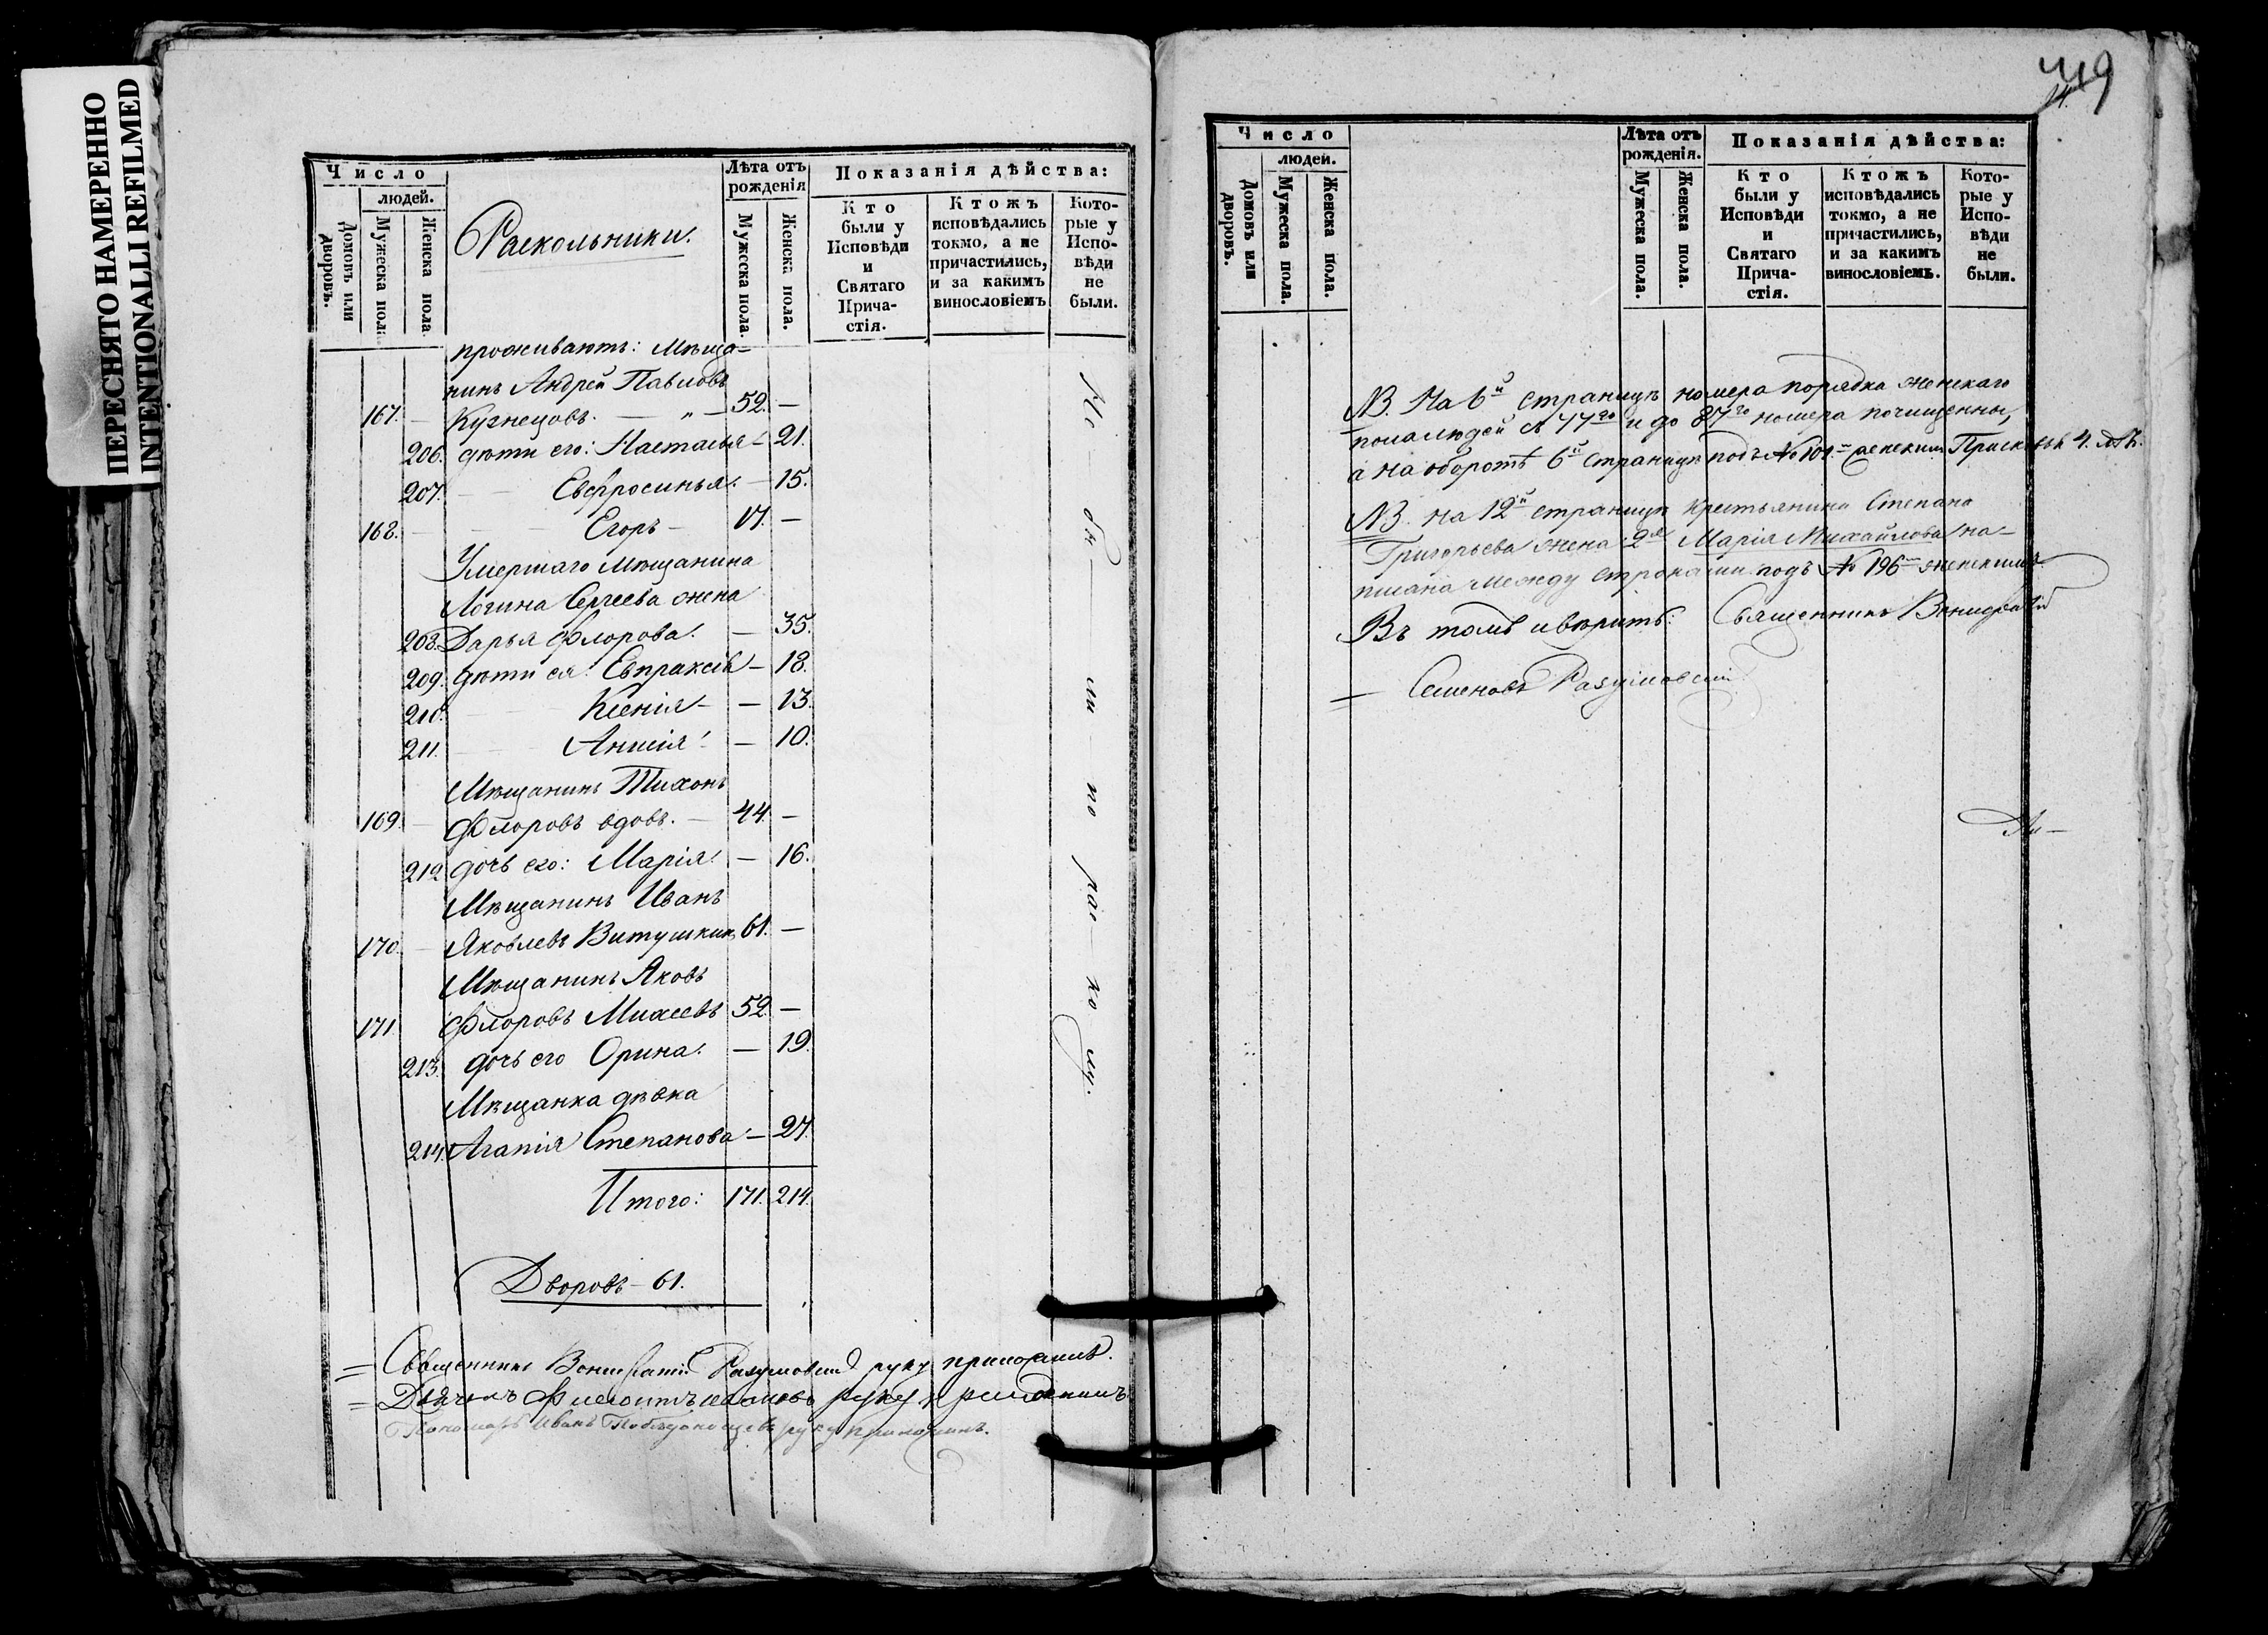 ПЕРЕСНЯТО НАМЕРЕННО
INTENTIONALLI REFILMED
Число
людей.
Домовъ или дворовъ.
Мужеска пола.
Женска пола.
Раскольники.
Лѣта отъ рожденія
Мужеска пола.
Женска пола.
Показанія дѣйства:
Кто были у Исповѣди и Святаго Прича-стія.
Ктожъ исповѣдались токмо, а не причастились, и за какимъ винословіемъ
Кото-рые у Испо-вѣди не были.
проживаютъ: Мѣща-
нинъ Андрей Павловъ
167. – Кузнецовъ. – „ – 52. –
206. дѣти его: Настасья – 21.
207. – Евфросинья. – 15.
168. – Егоръ – 17. –
Умершаго мѣщанина
Логина Сергеева жена
208. Дарья Флорова. – 35.
209. дѣти ея: Евпраксія – 18.
210. Ксенія – – 13.
211. Анисія – – 10.
Мѣщанинъ Тихонъ
169. – Флоровъ вдовъ. – 44. –
212. дочь его: Марія. – 16.
Мѣщанинъ Иванъ
170. – Яковлевъ Витушкинъ 61. –
Мѣщанинъ Яковъ
171. Флоровъ Михеевъ 52. –
213. дочь его Орина. – 19.
Мѣщанка дѣвка
214. Агапія Степанова – 27.
Итого: 171. 214.
Дворовъ – 61.
Не – бы – ли – по рас ко лу.
= Священникъ Вонифатій Разумовскій руку приложилъ.
= Дьячекъ руку приложилъ
Пономарь Иванъ Побѣдоносцевъ руку приложилъ.
419
14.
Число
людей.
Домовъ или дворовъ.
Мужеска пола.
Женска пола.
Лѣта отъ рожденія.
Мужеска пола.
Женска пола.
Показанія дѣйства:
Кто были у Исповѣди и Святаго Прича-стія.
Ктожъ исповѣдались токмо, а не причастились, и за какимъ винословіемъ.
Кото-рые у Испо-вѣди не были.
NB. На 6й страницѣ номера порядка женскаго
пола людей съ 77го и до 87го номера почищены,
а на оборотѣ 6й страницы подъ № 101м женскимъ Прасковья 4. лѣтъ.
NB. на 12й страницѣ крестьянина Степана
Григорьева жена 2я Марія Михайлова на-
писана между строками подъ № 196м женскимъ
Въ томъ и вѣритъ: Священникъ Вонифатій
= Семеновъ Разумовскій